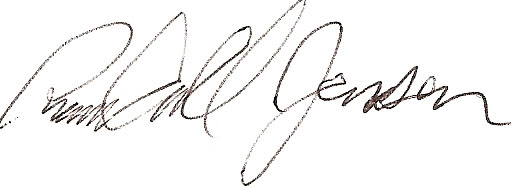 Randall Jensen